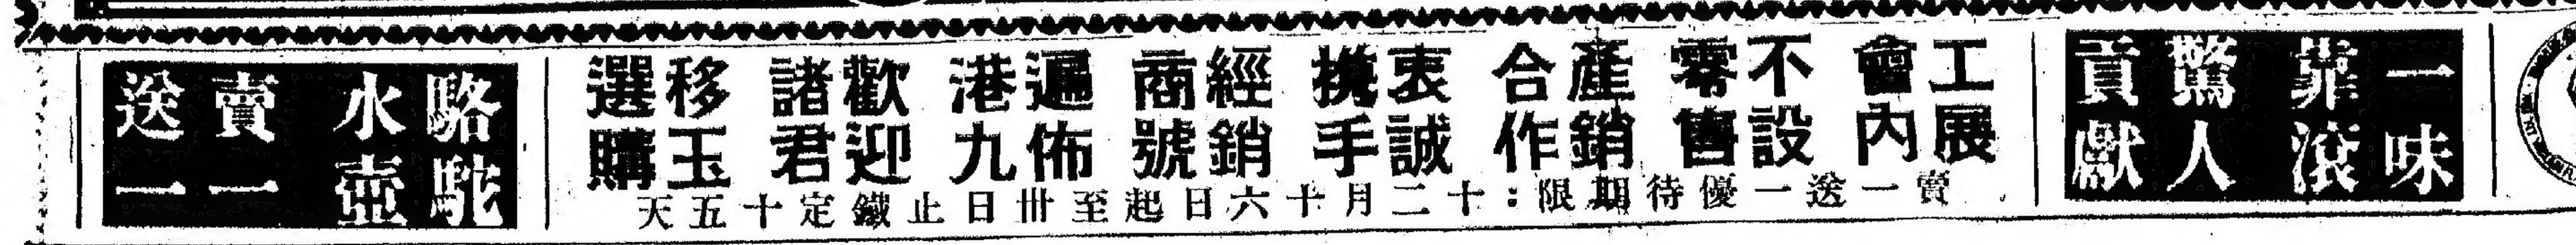 一味靠滾
驚人貢獻
工展會內
不設零售
產銷合作
衷誠携手
經銷商號
遍佈港九
歡迎諸君
移玉選購
賣一送一優待期限：十二月十六日起至卅日止鐵定十五天
駱駝水壺
賣一送一